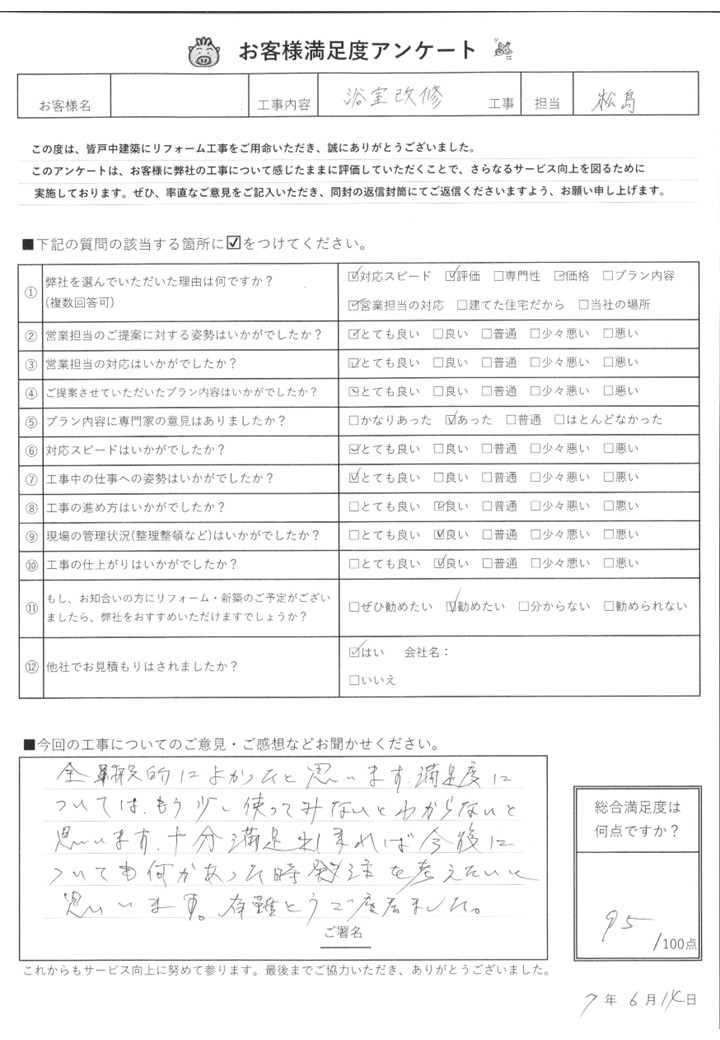 お客様満足度アンケート
お客様名 工事内容 浴室改修 工事 担当 松島
この度は、皆戸中建築にリフォーム工事をご用命いただき、誠にありがとうございました。
このアンケートは、お客様に弊社の工事について感じたままに評価していただくことで、さらなるサービス向上を図るために
実施しております。ぜひ、率直なご意見をご記入いただき、同封の返信封筒にてご返信くださいますよう、お願い申し上げます。
■下記の質問の該当する箇所に☑をつけてください。
① 弊社を選んでいただいた理由は何ですか？ ☑対応スピード ☑評価 □専門性 ☑価格 □プラン内容
(複数回答可) ☑営業担当の対応 □建てた住宅だから □当社の場所
② 営業担当のご提案に対する姿勢はいかがでしたか？ ☑とても良い □良い □普通 □少々悪い □悪い
③ 営業担当の対応はいかがでしたか？ ☑とても良い □良い □普通 □少々悪い □悪い
④ ご提案させていただいたプラン内容はいかがでしたか？ ☑とても良い □良い □普通 □少々悪い □悪い
⑤ プラン内容に専門家の意見はありましたか？ □かなりあった ☑あった □普通 □ほとんどなかった
⑥ 対応スピードはいかがでしたか？ ☑とても良い □良い □普通 □少々悪い □悪い
⑦ 工事中の仕事への姿勢はいかがでしたか？ ☑とても良い □良い □普通 □少々悪い □悪い
⑧ 工事の進め方はいかがでしたか？ □とても良い ☑良い □普通 □少々悪い □悪い
⑨ 現場の管理状況(整理整頓など)はいかがでしたか？ □とても良い ☑良い □普通 □少々悪い □悪い
⑩ 工事の仕上がりはいかがでしたか？ □とても良い ☑良い □普通 □少々悪い □悪い
⑪ もし、お知合いの方にリフォーム・新築のご予定がござい
ましたら、弊社をおすすめいただけますでしょうか？ □ぜひ勧めたい ☑勧めたい □分からない □勧められない
⑫ 他社でお見積もりはされましたか？ ☑はい 会社名：
□いいえ
■今回の工事についてのご意見・ご感想などお聞かせください。
全般的によかったと思います.満足度に
ついては、もう少し使ってみないとわからないと
思います.十分満足出来れば今後に
ついても何かあった時発注を考えたいと
思います。有難とうご座居ました。
ご署名
総合満足度は
何点ですか？
95
/100点
これからもサービス向上に努めて参ります。最後までご協力いただき、ありがとうございました。
7年 6月14日